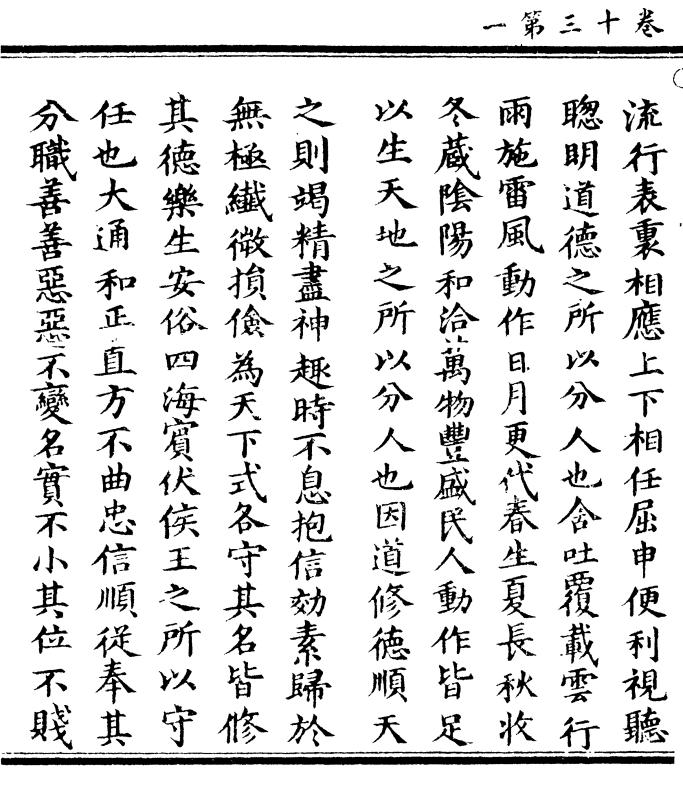 卷十三第一
流行表裏相應上下相任屈申便利視聽
聦明道德之所以分人也含吐覆載雲行
雨施雷風動作日月更代春生夏長秋收
冬蔵隂陽和洽萬物豐盛民人動作皆足
以生天地之所以分人也因道修德順天
之則竭精盡神趣時不息抱信効素歸於
無極纎微損儉為天下式各守其名皆修
其德樂生安俗四海賓伏侯王之所以守
任也大通和正直方不曲忠信順從奉其
分職善善惡惡不變名實不小其位不賤